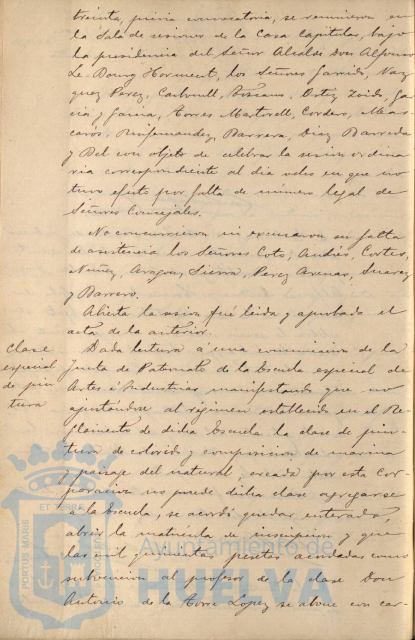 treinta, previa convocatoria, se reunieron en
la Sala de sesiones de la Casa Capitular, bajo
la presidencia del Señor Alcalde Don Alfonso
Le Bourg Norment, los Señores Garrido, Vaz
quez Perez, Carbonell, Toscano, Ortiz Zoido, Ga
cía, Garcia, Torres Martorell, Cordero, Mas-
caros, Ruifernandez, Barrera, Diaz Barreda
y Bel con objeto de celebrar la sesion ordina
ria correspondiente al dia ocho en que no
tuvo efecto por falta de número legal de
Señores Concejales.
No concurrieron ni excusaron su falta
de asistencia los Señores Coto, Andrés, Cortes,
Nuñez, Aragon, Sierra, Perez Arenas, Suarez
y Barrero.
Abierta la sesion fué leida y aprobada el
acta de la anterior.
Clase
especial
de pin
tura
Dada lectura á una comunicacion de la
Junta de Patronato de la Escuela especial de
Artes é Industrias manifestando que no
ajustándose al régimen establecido en el Re-
glamento de dicha Escuela la clase de pin-
tura de colorido y composicion de marina
y paisaje del natural, creada por esta Cor-
poracion no puede dicha clase agregarse
á la Escuela, se acordó quedar enterado,
abrir la matricula de inscripcion y que
las mil quinientas pesetas acordadas como
subvencion al profesor de la clase Don
Antonio de la Torre Lopez se abone con car-
PORTUS MARIS
ET TERRÆ
Ayuntamiento de
HUELVA